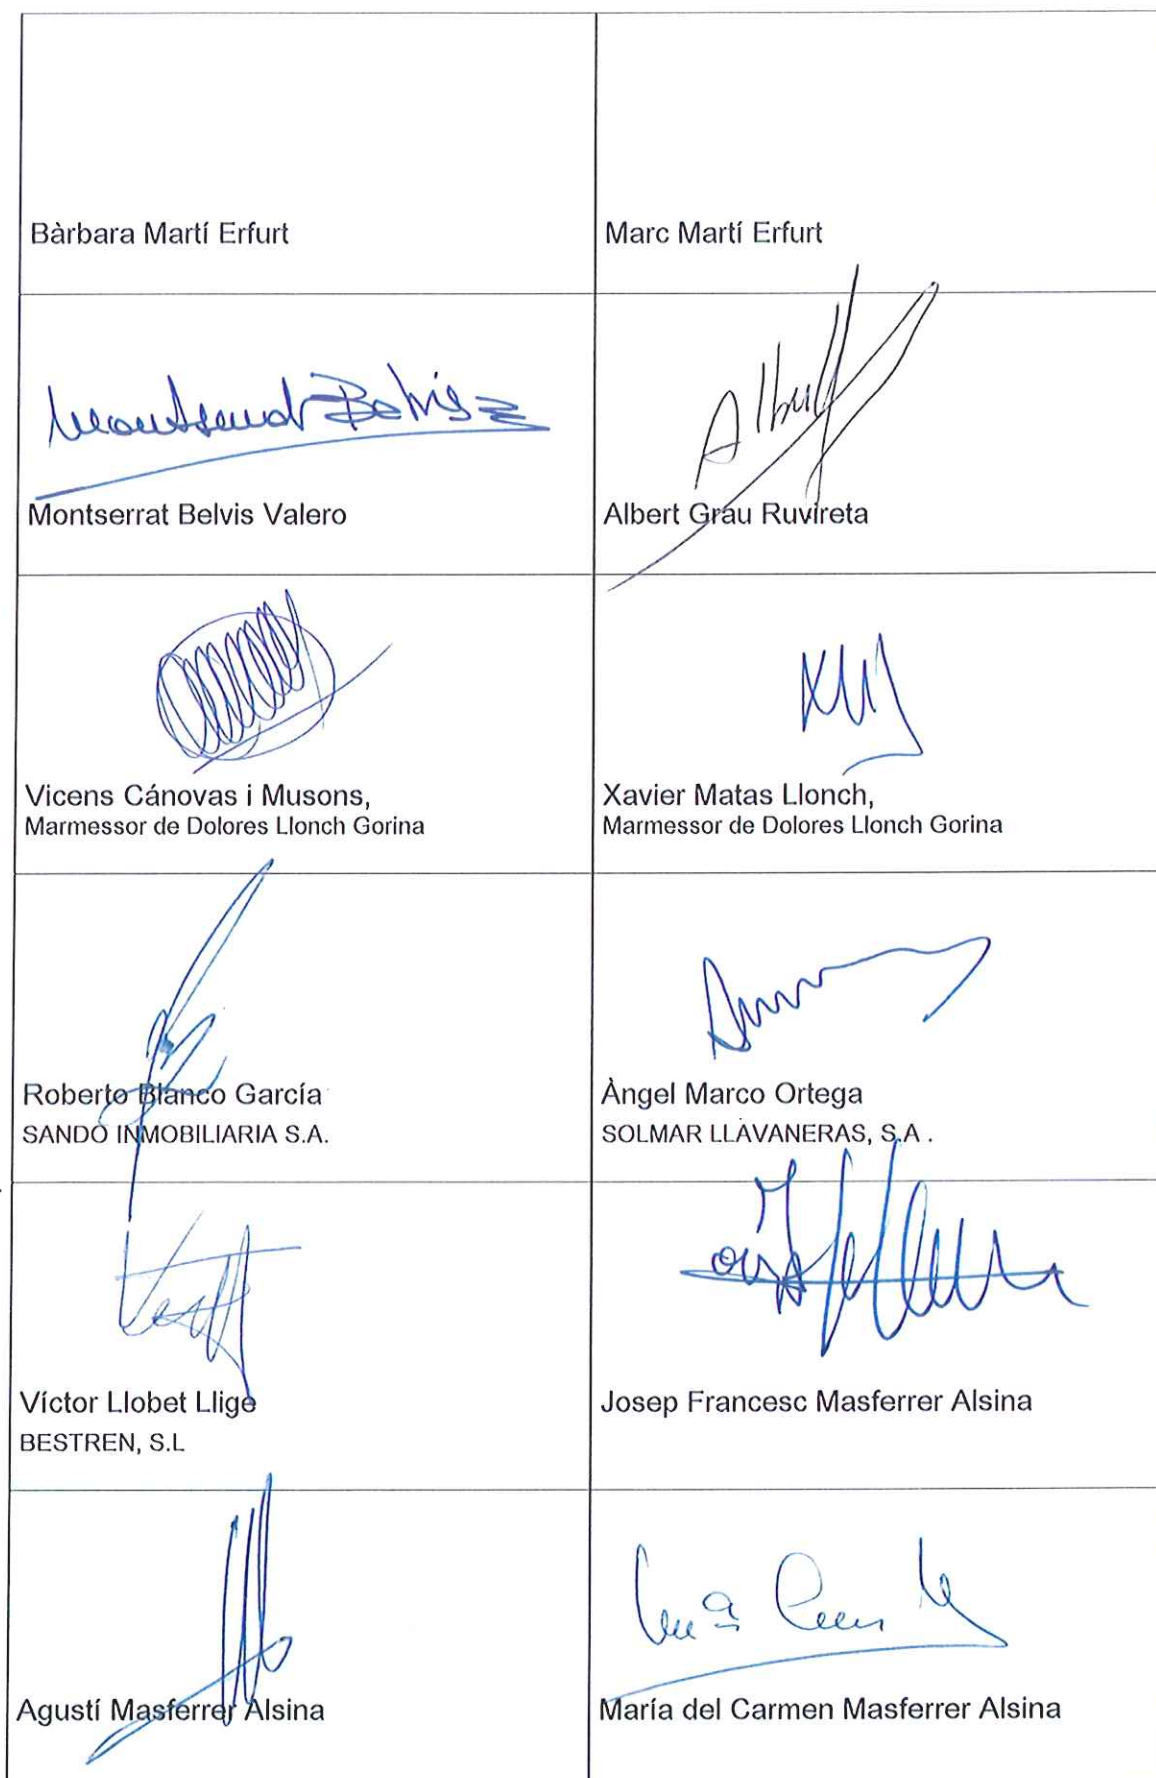 Bàrbara Martí Erfurt
Marc Martí Erfurt
Montserrat Belvis
Montserrat Belvis Valero
Albert
Albert Grau Ruvireta
Vicens Cánovas i Musons,
Marmessor de Dolores Llonch Gorina
Xavier Matas Llonch,
Marmessor de Dolores Llonch Gorina
Roberto Blanco García
SANDO INMOBILIARIA S.A.
Àngel Marco Ortega
SOLMAR LLAVANERAS, S.A .
Víctor Llobet Lligé
BESTREN, S.L
Josep Francesc Masferrer Alsina
Agustí Masferrer Alsina
María del Carmen Masferrer Alsina